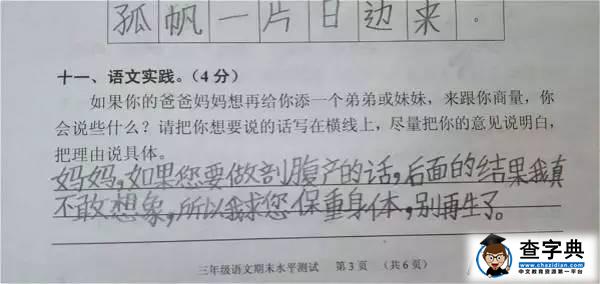 孤帆一片日边来。
十一、语文实践。(4分)
如果你的爸爸妈妈想再给你添一个弟弟或妹妹，来跟你商量，你
会说些什么？请把你想要说的话写在横线上，尽量把你的意见说明白，
把理由说具体。
妈妈，如果您要做剖腹产的话，后面的结果我真
不敢想象，所以我求您保重身体，别再生了。
三年级语文期末水平测试 第3页 (共6页)
查字典
www.chazidian.com
中文教育资源第一平台